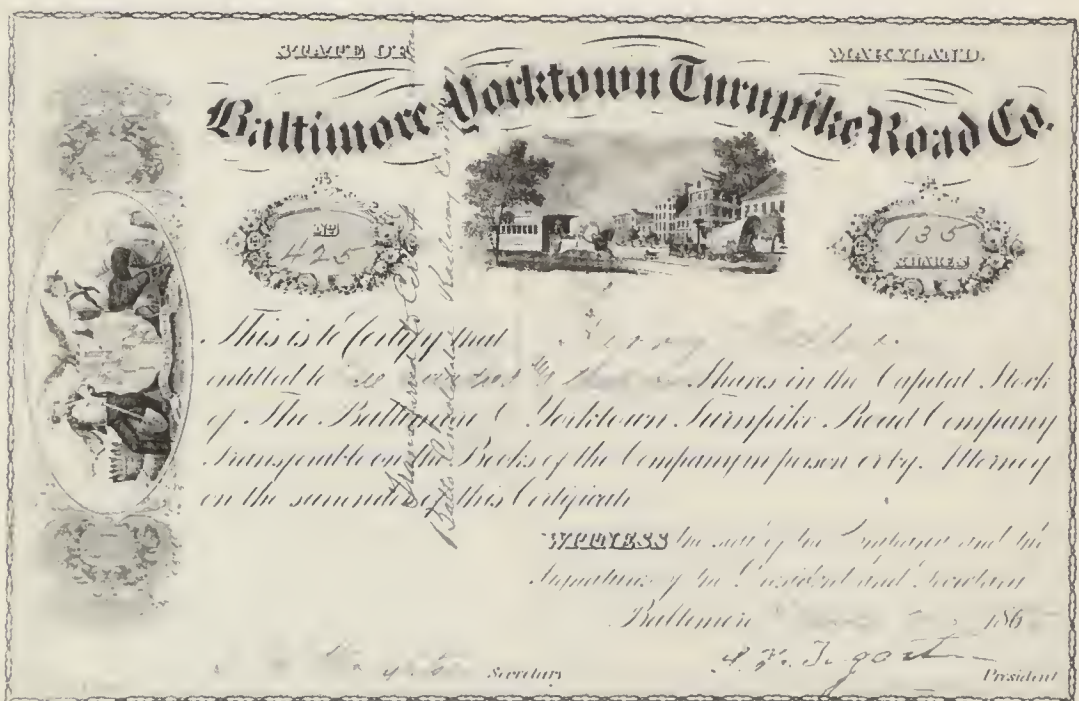 STATE OF MARYLAND.
Baltimore Yorktown Turnpike Road Co.
No 425
135 SHARES
This is to Certify that
entitled to Shares in the Capital Stock
of The Baltimore & Yorktown Turnpike Road Company
Transferable on the Books of the Company in person or by Attorney
on the surrender of this Certificate
WITNESS the seal of the Company and the
Signatures of the President and Secretary
Baltimore 186
Secretary
President
Transferred to
Balto Consolidated Railway